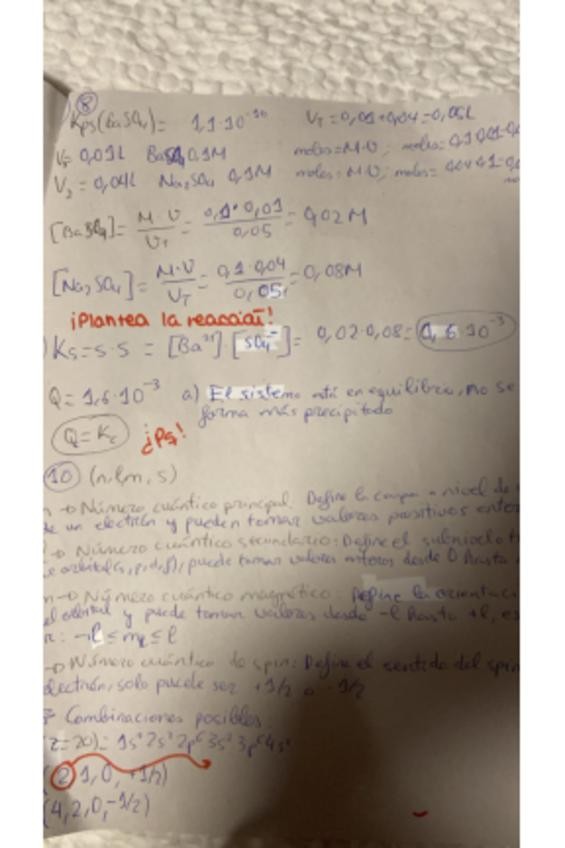 8
Kps(BaSO₄) = 1,1·10⁻¹⁰ V_T = 0,01+0,04=0,05L
V₁= 0,01L 0,1M moles=M·V; moles= 0,1·0,01
V₂ = 0,04L Na₂SO₄ 0,1M moles=M·V; moles=
[BaSO₄]= M·V/V_T = 0,1·0,01/0,05 = 0,02M
[Na₂SO₄]= M·V/V_T = 0,1·0,04/0,05 = 0,08M
¡Plantea la reacción!
Ks=s·s = [Ba²⁺]·[SO₄²⁻]= 0,02·0,08= 1,6·10⁻³
Q=1,6·10⁻³ a) El sistema está en equilibrio, no se
forma más precipitado
Q=Kc ¿Ps!
10 (n,l,m,s)
n → Número cuántico principal. Define la capa o nivel de
de un electrón y pueden tomar valores positivos enteros
→ Número cuántico secundario: Define el subnivel
orbital(s,p,d,f), puede tomar valores enteros desde 0 hasta
m→ Número cuántico magnético: Define la orientaci
el orbital y puede tomar valores desde -l hasta +l, es
: -l ≤ m ≤ l
→ Número cuántico de spin: Define el sentido del spin
electrón, solo puede ser +1/2 o -1/2
Combinaciones posibles
(z=20)= 1s²2s²2p⁶3s²3p⁶4s²
(2,1,0,+1/2)
(4,2,0,-1/2)